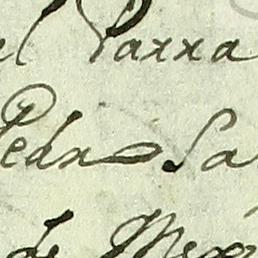 el Parra
Pedro Sa
de